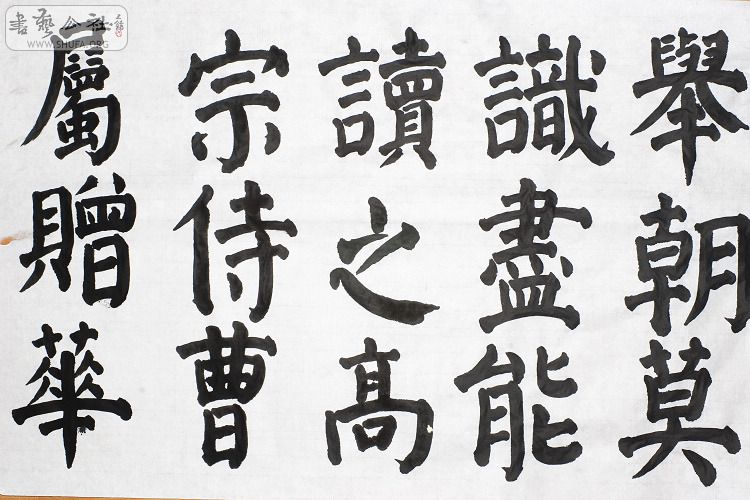 舉朝莫
識盡能
讀之高
宗侍曹
屬贈華
書藝公社
WWW.SHUFA.ORG